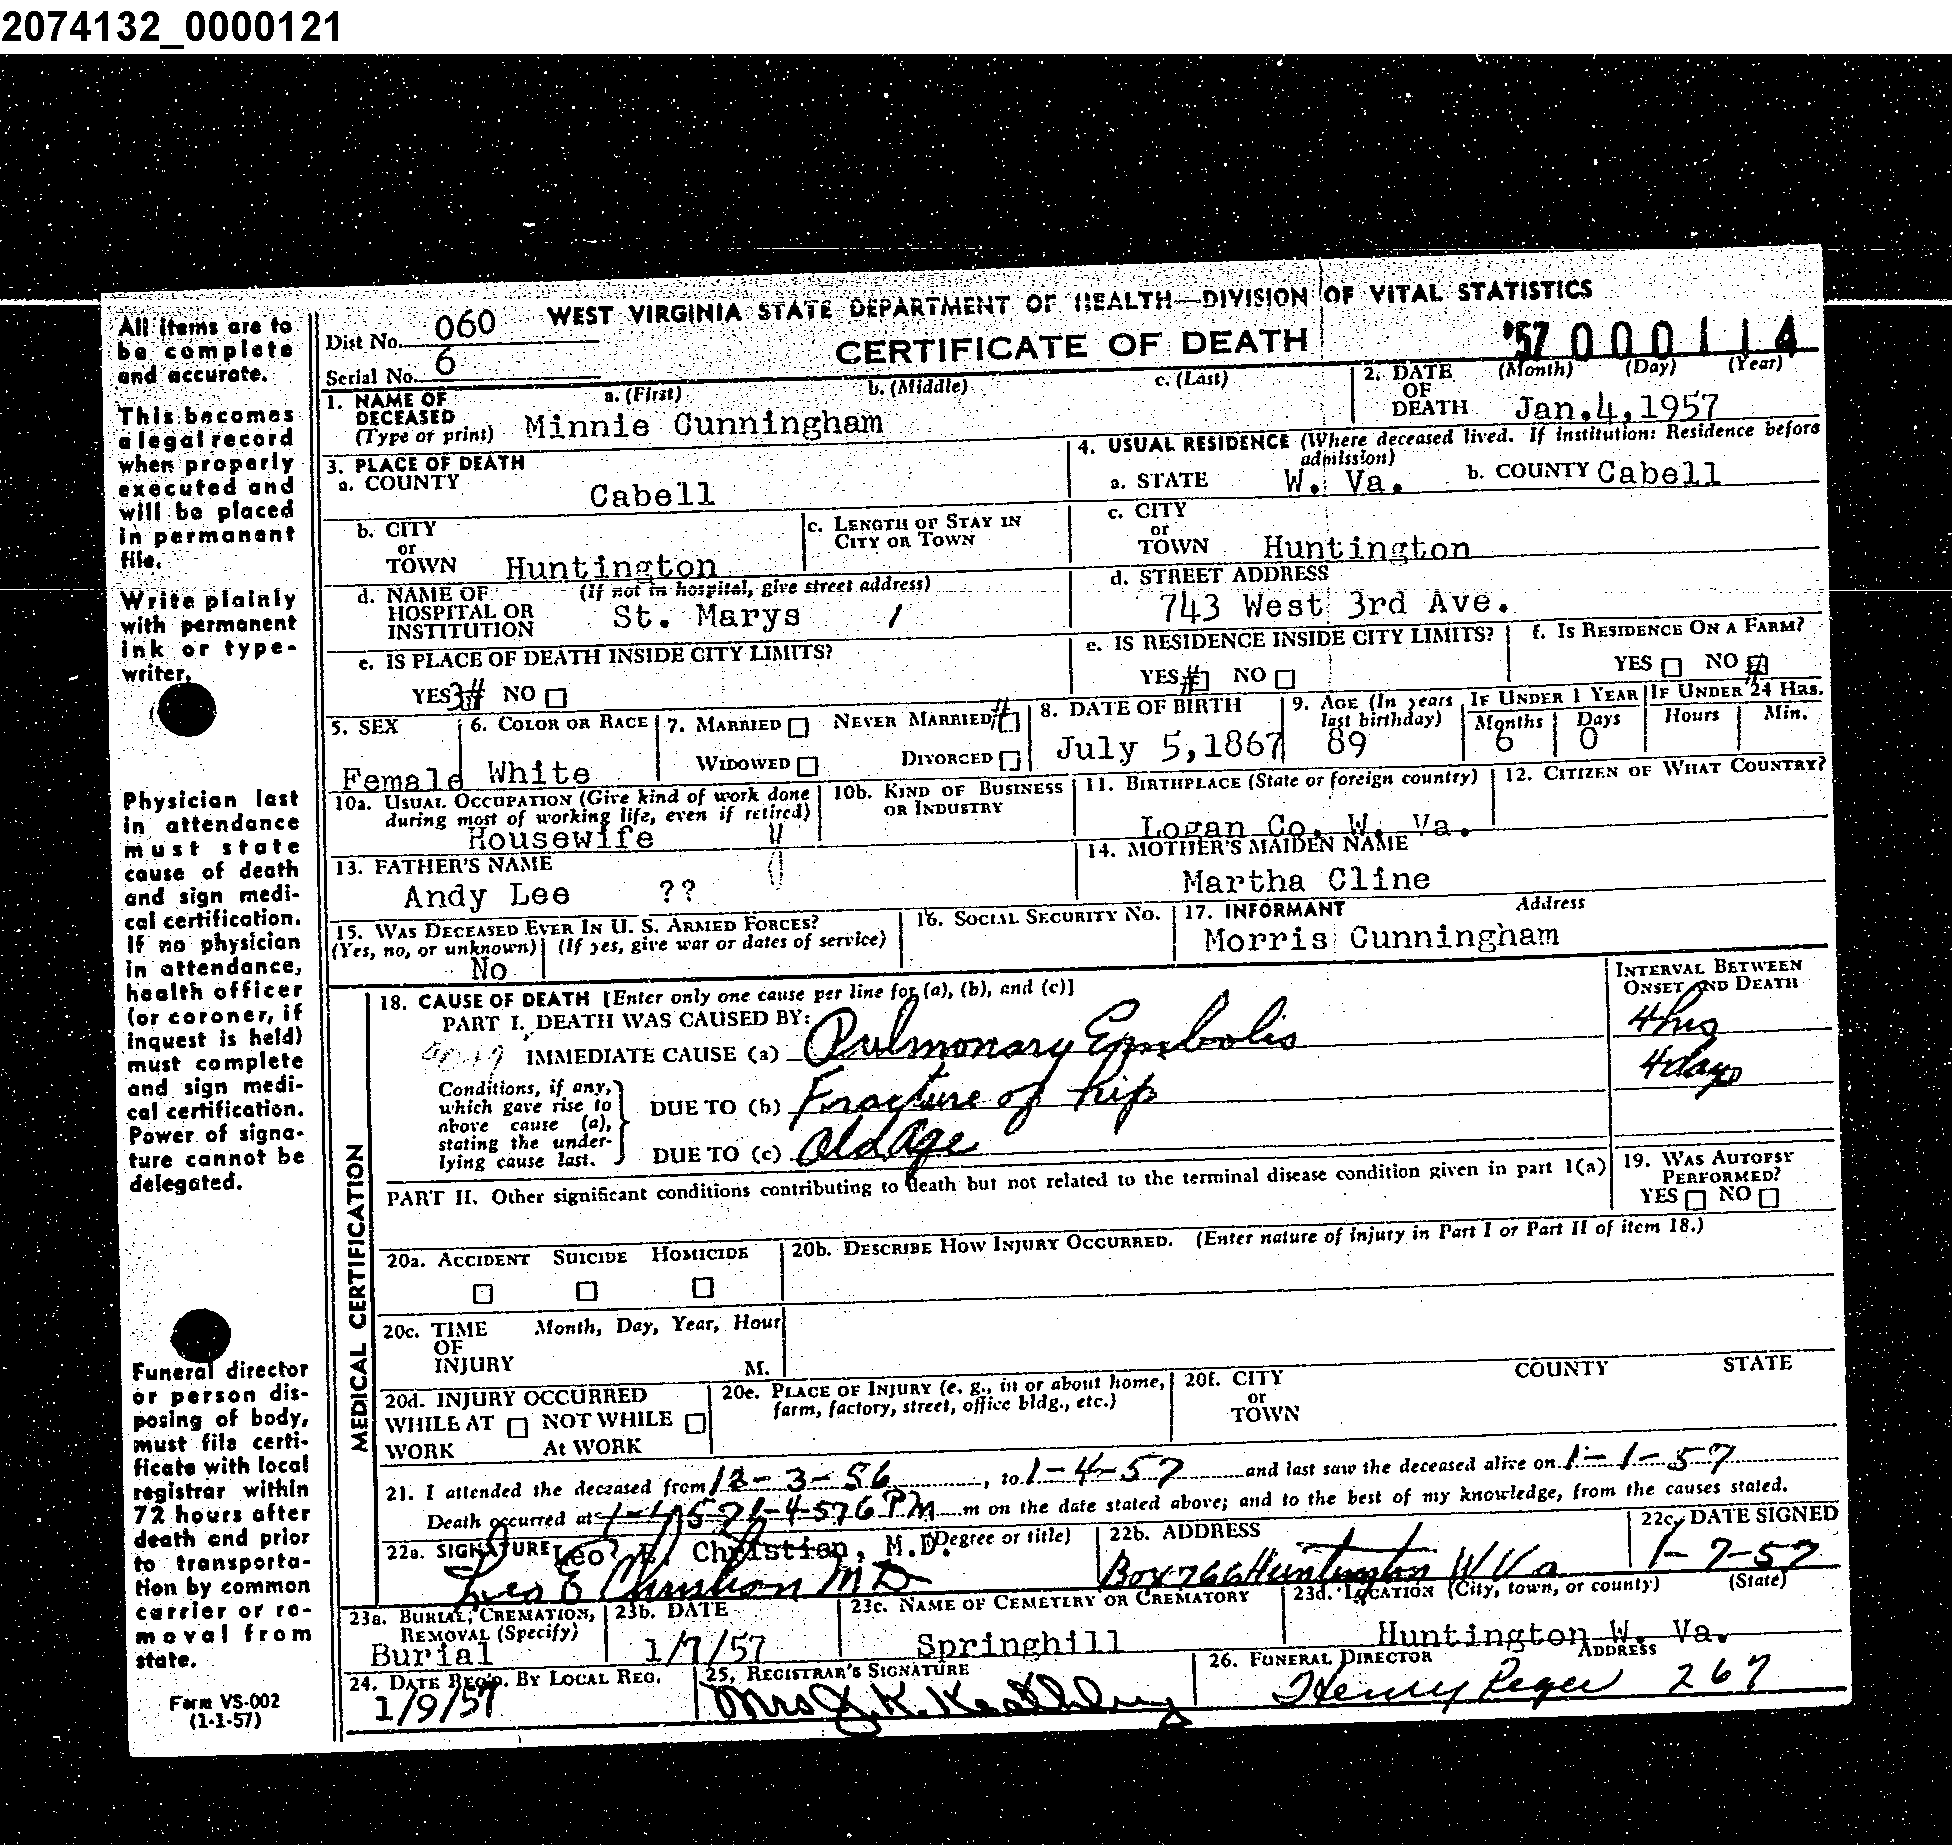 2074132_0000121
All items are to
be complete
and accurate.
This becomes
a legal record
when properly
executed and
will be placed
in permanent
file.
Write plainly
with permanent
ink or type-
writer.
Physician last
in attendance
must state
cause of death
and sign medi-
cal certification.
If no physician
in attendance,
health officer
(or coroner, if
inquest is held)
must complete
and sign medi-
cal certification.
Power of signa-
ture cannot be
delegated.
Funeral director
or person dis-
posing of body,
must file certi-
ficate with local
registrar within
72 hours after
death and prior
to transporta-
tion by common
carrier or re-
moval from
state.
Form VS-002
(1-1-57)
WEST VIRGINIA STATE DEPARTMENT OF HEALTH—DIVISION OF VITAL STATISTICS
Dist No. 060
CERTIFICATE OF DEATH
'57 000114
Serial No. 6
1. NAME OF DECEASED (Type or print) a. (First) b. (Middle) c. (Last)
Minnie Cunningham
2. DATE OF DEATH (Month) (Day) (Year)
Jan.4,1957
3. PLACE OF DEATH
a. COUNTY Cabell
4. USUAL RESIDENCE (Where deceased lived. If institution: Residence before admission)
a. STATE W. Va. b. COUNTY Cabell
b. CITY or TOWN Huntington
c. LENGTH OF STAY IN CITY OR TOWN
c. CITY or TOWN Huntington
d. NAME OF HOSPITAL OR INSTITUTION (If not in hospital, give street address)
St. Marys /
d. STREET ADDRESS
743 West 3rd Ave.
e. IS PLACE OF DEATH INSIDE CITY LIMITS?
YES 3# NO
e. IS RESIDENCE INSIDE CITY LIMITS?
YES # NO
f. IS RESIDENCE ON A FARM?
YES NO #
5. SEX Female
6. COLOR OR RACE White
7. MARRIED NEVER MARRIED #
WIDOWED DIVORCED
8. DATE OF BIRTH July 5,1867
9. AGE (In years last birthday) 89
IF UNDER 1 YEAR Months 6 Days 0
IF UNDER 24 HRS. Hours Min.
10a. USUAL OCCUPATION (Give kind of work done during most of working life, even if retired)
Housewife
10b. KIND OF BUSINESS OR INDUSTRY
11. BIRTHPLACE (State or foreign country)
Logan Co. W. Va.
12. CITIZEN OF WHAT COUNTRY?
13. FATHER'S NAME
Andy Lee ??
14. MOTHER'S MAIDEN NAME
Martha Cline
15. WAS DECEASED EVER IN U. S. ARMED FORCES?
(Yes, no, or unknown) (If yes, give war or dates of service)
No
16. SOCIAL SECURITY NO.
17. INFORMANT Address
Morris Cunningham
MEDICAL CERTIFICATION
18. CAUSE OF DEATH [Enter only one cause per line for (a), (b), and (c)]
INTERVAL BETWEEN ONSET AND DEATH
PART I. DEATH WAS CAUSED BY:
IMMEDIATE CAUSE (a) Pulmonary Embolis 4 hrs
Conditions, if any, which gave rise to above cause (a), stating the underlying cause last.
DUE TO (b) Fracture of hip 4 days
DUE TO (c) Old Age
PART II. Other significant conditions contributing to death but not related to the terminal disease condition given in part 1(a)
19. WAS AUTOPSY PERFORMED?
YES NO
20a. ACCIDENT SUICIDE HOMICIDE
20b. DESCRIBE HOW INJURY OCCURRED. (Enter nature of injury in Part I or Part II of item 18.)
20c. TIME OF INJURY Month, Day, Year, Hour
M.
20d. INJURY OCCURRED
WHILE AT WORK NOT WHILE At WORK
20e. PLACE OF INJURY (e. g., in or about home, farm, factory, street, office bldg., etc.)
20f. CITY or TOWN COUNTY STATE
21. I attended the deceased from 12-3-56, to 1-4-57 and last saw the deceased alive on 1-1-57
Death occurred at 1-4-57 1-4-57 6 PM m on the date stated above; and to the best of my knowledge, from the causes stated.
22a. SIGNATURE (Degree or title)
Leo E. Christian, M.D.
Leo E Christian MD
22b. ADDRESS
Box 766 Huntington W Va
22c. DATE SIGNED
1-7-57
23a. BURIAL, CREMATION, REMOVAL (Specify)
Burial
23b. DATE
1/7/57
23c. NAME OF CEMETERY OR CREMATORY
Springhill
23d. LOCATION (City, town, or county) (State)
Huntington W. Va.
24. DATE REC'D. BY LOCAL REG.
1/9/57
25. REGISTRAR'S SIGNATURE
Mrs J. K. Keathley
26. FUNERAL DIRECTOR ADDRESS
Henry Reger 267